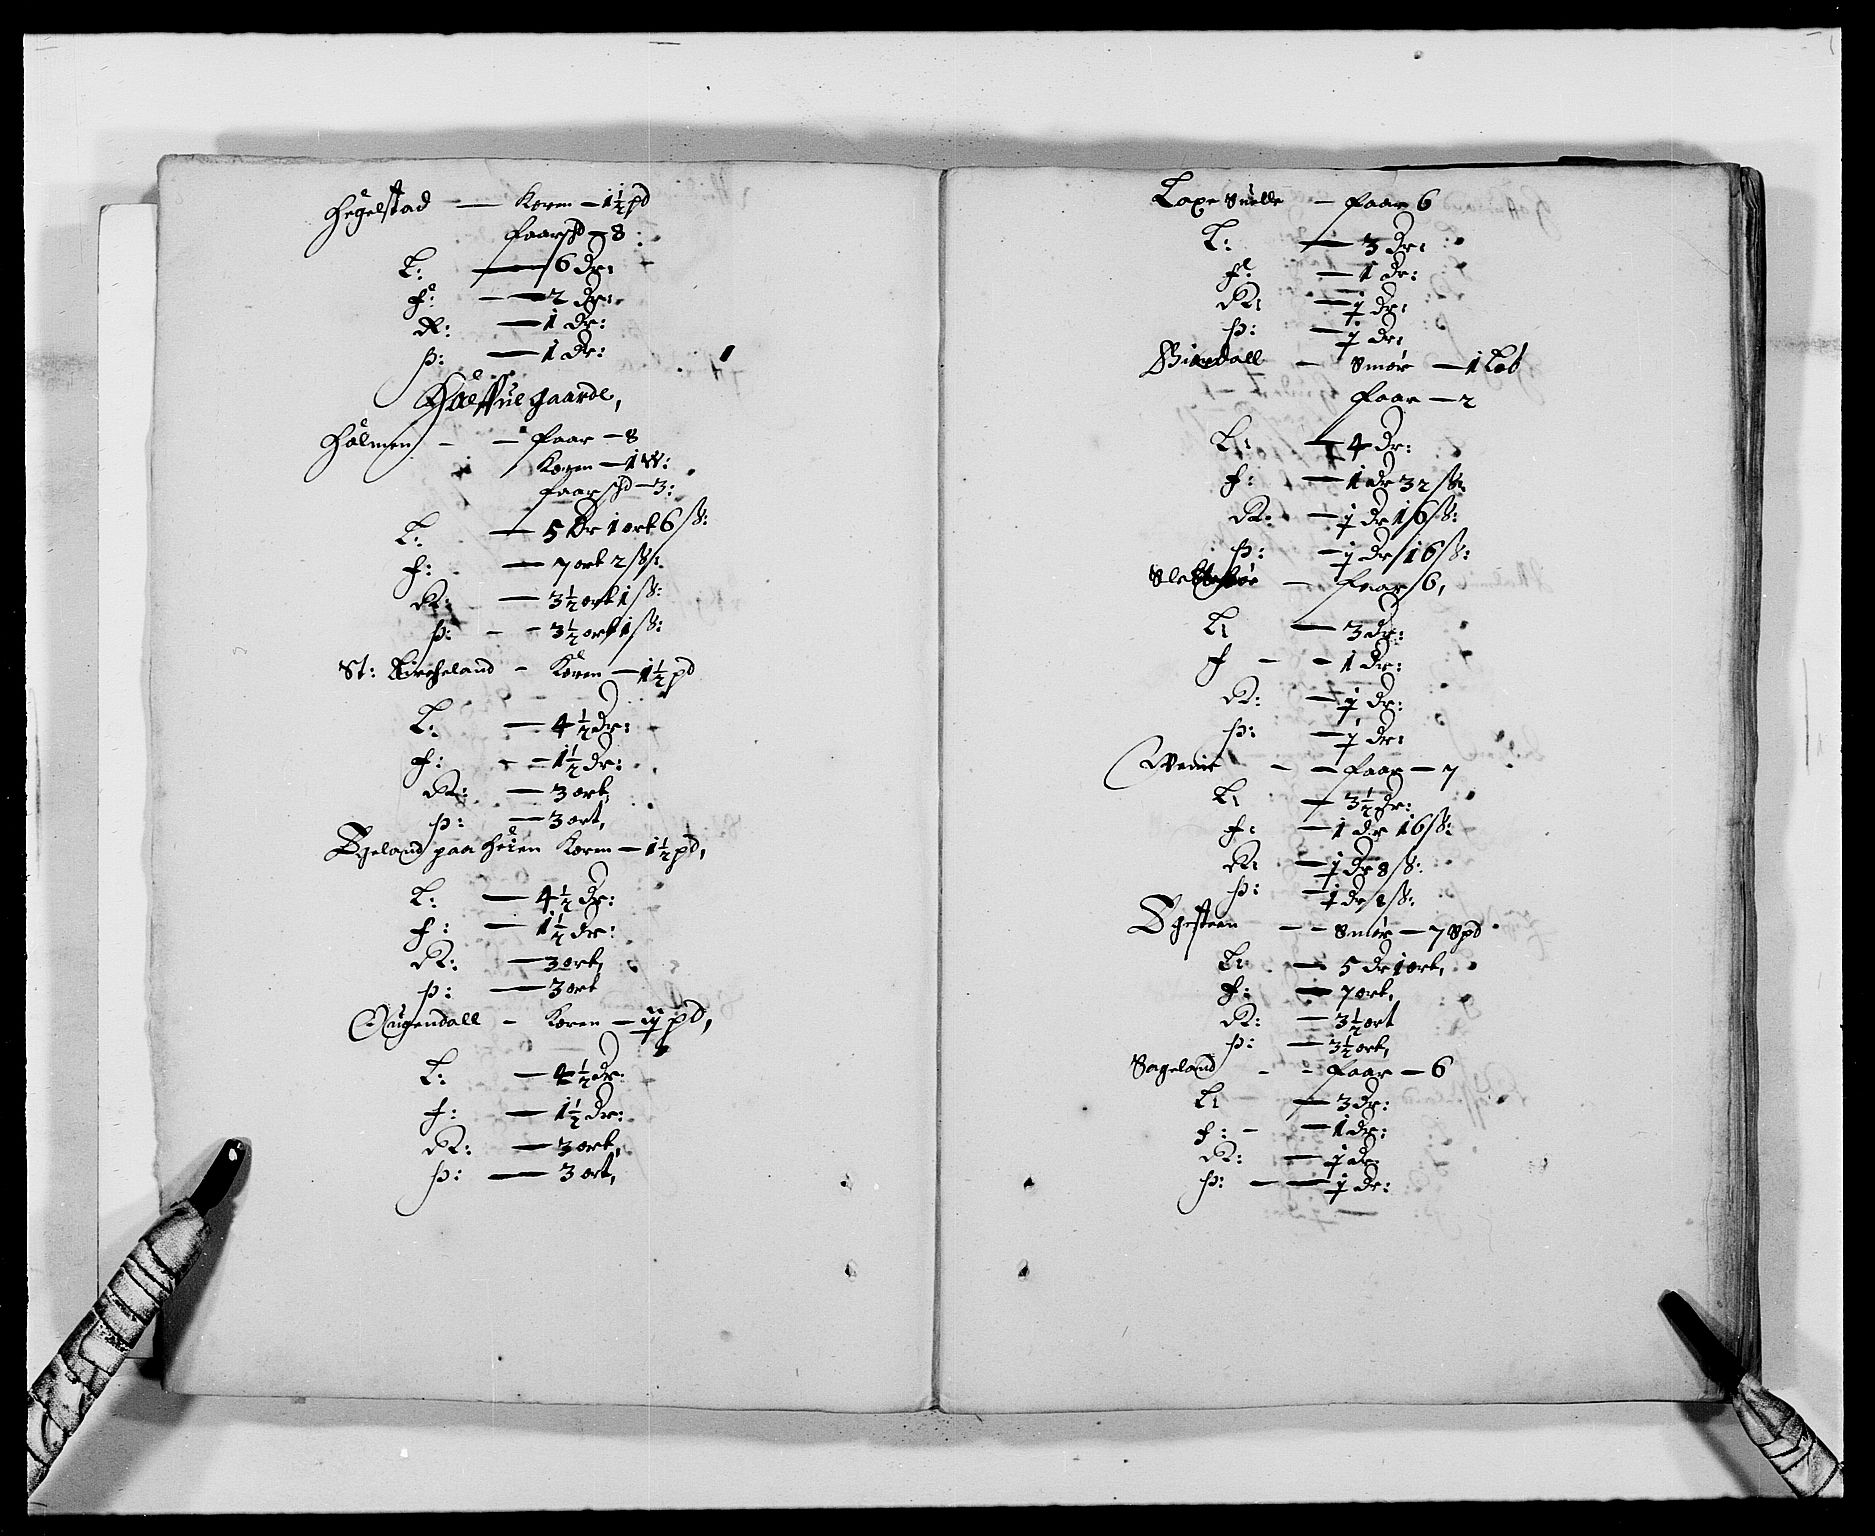 Hegelstad — Koren — 1½ pd
faarsHd — 8:
L: — 6 dr:
f: — 2 dr:
R: — 1 dr:
þ: — 1 dr:
Halffue gaarde,
Holmen — faar — 8
Koren — 1 W:
faarsHd — 3:
L: — 5 dr 1 ort 6 ſß:
f: — 7 ort 2 ſß:
R: — 3½ ort 1 ſß:
þ: — 3½ ort 1 ſß:
St: Kircheland — Koren — 1½ pd
L: — 4½ dr:
f: — 1½ dr:
R: — 3 ort,
þ: — 3 ort,
Egeland paa Heien Koren — 1½ pd,
L: — 4½ dr:
f: — 1½ dr:
R: — 3 ort,
þ: — 3 ort
Rugendall — Koren — pd,
L: — 4½ dr:
f: — 1½ dr:
R: — 3 ort,
þ: — 3 ort,
Laxesuelle — faar 6
L: — 3 dr:
f: — 1 dr:
R: — ½ dr:
þ: — ½ dr:
Biredall — Smør — 1 Løb
faar — 2
L: — 4 dr:
f: — 1 dr 32 ſß:
R: — ½ dr 16 ſß:
þ: — ½ dr 16 ſß:
Slettebøe — faar 6,
L: — 3 dr:
f — 1 dr:
R: — ½ dr:
þ: — ½ dr:
— faar — 7
L: — 3½ dr:
f: — 1 dr 16 ſß:
R: — ½ dr 8 ſß:
þ: — ½ dr 8 ſß:
Egesteen — Smør — 7 Spd
L: — 5 dr 1 ort,
f: — 7 ort,
R: — 3½ ort
þ: — 3½ ort,
Sageland — faar — 6
L: — 3 dr:
f: — 1 dr:
R: — ½ dr
þ: — ½ dr: